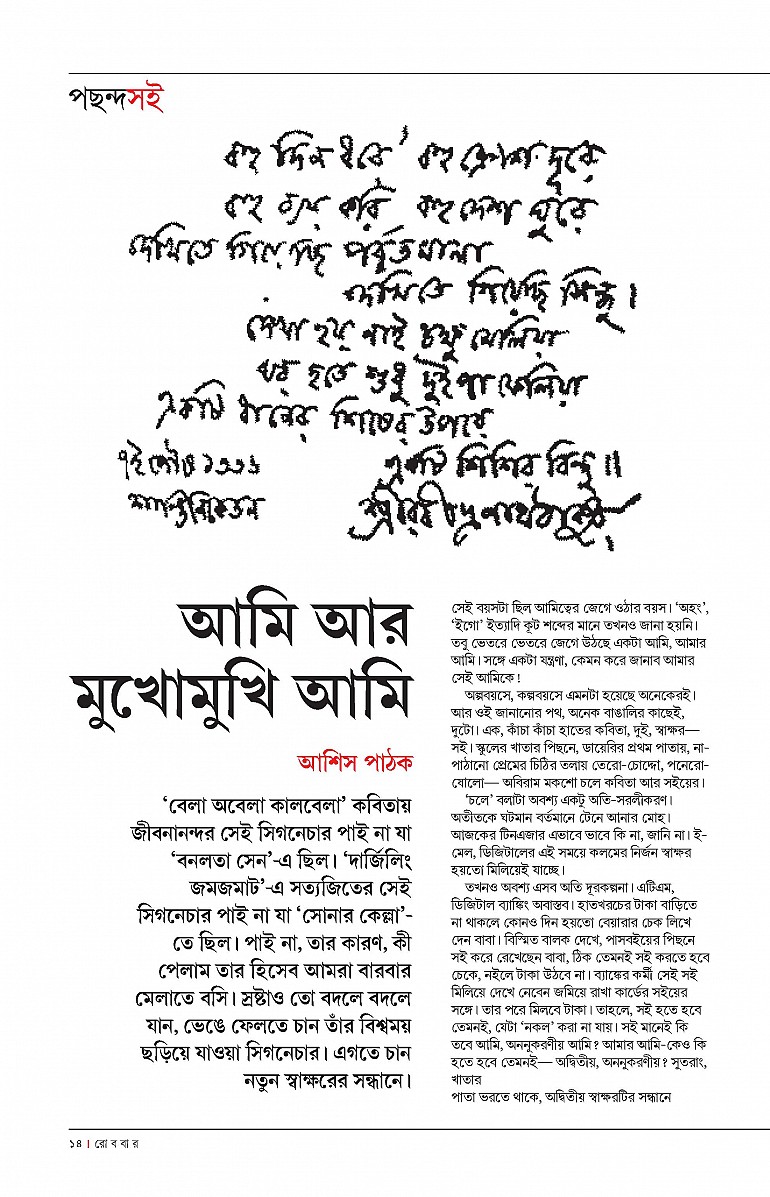 পছন্দসই
বহু দিন ধরে' বহু ক্রোশ দূরে
বহু ব্যয় করি বহু দেশ ঘুরে
দেখিতে গিয়েছি পর্ব্বতমালা
দেখিতে গিয়েছি সিন্ধু।
দেখা হয় নাই চক্ষু মেলিয়া
ঘর হতে শুধু দুই পা ফেলিয়া
একটি ধানের শিষের উপরে
একটি শিশির বিন্দু॥
৭ই পৌষ ১৩৩৬
শান্তিনিকেতন
শ্রীরবীন্দ্রনাথ ঠাকুর
আমি আর
মুখোমুখি আমি
আশিস পাঠক
‘বেলা অবেলা কালবেলা’ কবিতায়
জীবনানন্দর সেই সিগনেচার পাই না যা
‘বনলতা সেন’-এ ছিল। ‘দার্জিলিং
জমজমাট’-এ সত্যজিতের সেই
সিগনেচার পাই না যা ‘সোনার কেল্লা’-
তে ছিল। পাই না, তার কারণ, কী
পেলাম তার হিসেব আমরা বারবার
মেলাতে বসি। স্রষ্টাও তো বদলে বদলে
যান, ভেঙে ফেলতে চান তাঁর বিশ্বময়
ছড়িয়ে যাওয়া সিগনেচার। এগতে চান
নতুন স্বাক্ষরের সন্ধানে।
সেই বয়সটা ছিল আমিত্বের জেগে ওঠার বয়স। ‘অহং’,
‘ইগো’ ইত্যাদি কূট শব্দের মানে তখনও জানা হয়নি।
তবু ভেতরে ভেতরে জেগে উঠছে একটা আমি, আমার
আমি। সঙ্গে একটা যন্ত্রণা, কেমন করে জানাব আমার
সেই আমিকে!
অল্পবয়সে, কল্পবয়সে এমনটা হয়েছে অনেকেরই।
আর ওই জানানোর পথ, অনেক বাঙালির কাছেই,
দুটো। এক, কাঁচা কাঁচা হাতের কবিতা, দুই, স্বাক্ষর—
সই। স্কুলের খাতার পিছনে, ডায়েরির প্রথম পাতায়, না-
পাঠানো প্রেমের চিঠির তলায় তেরো-চোদ্দো, পনেরো-
ষোলো— অবিরাম মকশো চলে কবিতা আর সইয়ের।
‘চলে’ বলাটা অবশ্য একটু অতি-সরলীকরণ।
অতীতকে ঘটমান বর্তমানে টেনে আনার মোহ।
আজকের টিনএজার এভাবে ভাবে কি না, জানি না। ই-
মেল, ডিজিটালের এই সময়ে কলমের নির্জন স্বাক্ষর
হয়তো মিলিয়েই যাচ্ছে।
তখনও অবশ্য এসব অতি দূরকল্পনা। এটিএম,
ডিজিটাল ব্যাঙ্কিং অবাস্তব। হাতখরচের টাকা বাড়িতে
না থাকলে কোনও দিন হয়তো বেয়ারার চেক লিখে
দেন বাবা। বিস্মিত বালক দেখে, পাসবইয়ের পিছনে
সই করে রেখেছেন বাবা, ঠিক তেমনই সই করতে হবে
চেকে, নইলে টাকা উঠবে না। ব্যাঙ্কের কর্মী সেই সই
মিলিয়ে দেখে নেবেন জমিয়ে রাখা কার্ডের সইয়ের
সঙ্গে। তার পরে মিলবে টাকা। তাহলে, সই হতে হবে
তেমনই, যেটা ‘নকল’ করা না যায়। সই মানেই কি
তবে আমি, অননুকরণীয় আমি? আমার আমি-কেও কি
হতে হবে তেমনই— অদ্বিতীয়, অননুকরণীয়? সুতরাং,
খাতার
পাতা ভরতে থাকে, অদ্বিতীয় স্বাক্ষরটির সন্ধানে
১৪ । রোববার